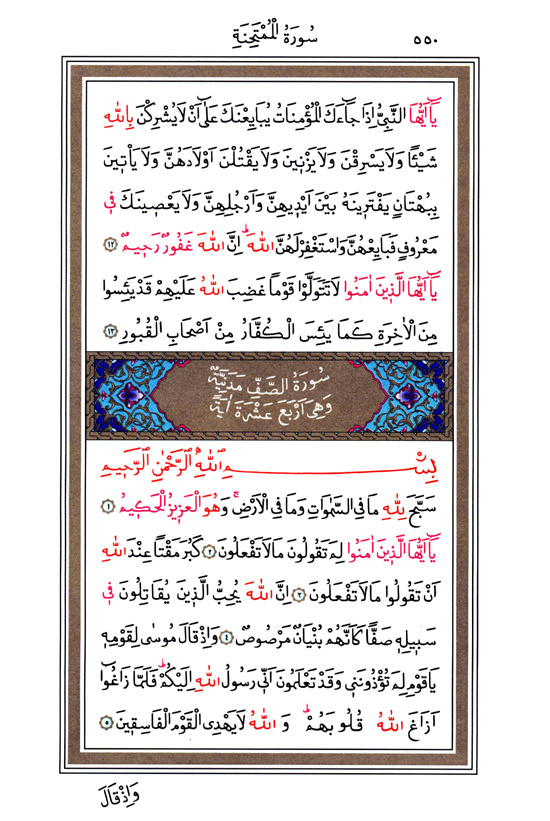 ٥٥٠
سُورَةُ الْمُمْتَحِنَةِ
يَٓا اَيُّهَا النَّبِيُّ اِذَا جَٓاءَكَ الْمُؤْمِنَاتُ يُبَايِعْنَكَ عَلٰٓى اَنْ لَا يُشْرِكْنَ بِاللّٰهِ
شَيْـًٔا وَلَا يَسْرِقْنَ وَلَا يَزْن۪ينَ وَلَا يَقْتُلْنَ اَوْلَادَهُنَّ وَلَا يَأْت۪ينَ
بِبُهْتَانٍ يَفْتَر۪ينَهُ بَيْنَ اَيْد۪يهِنَّ وَاَرْجُلِهِنَّ وَلَا يَعْص۪ينَكَ ف۪ي
مَعْرُوفٍ فَبَايِعْهُنَّ وَاسْتَغْفِرْ لَهُنَّ اللّٰهَۜ اِنَّ اللّٰهَ غَفُورٌ رَح۪يمٌ ١٢
يَٓا اَيُّهَا الَّذ۪ينَ اٰمَنُوا لَا تَتَوَلَّوْا قَوْمًا غَضِبَ اللّٰهُ عَلَيْهِمْ قَدْ يَئِسُوا
مِنَ الْاٰخِرَةِ كَمَا يَئِسَ الْكُفَّارُ مِنْ اَصْحَابِ الْقُبُورِ ١٣
سُورَةُ الصَّفِّ مَدَنِيَّةٌ
وَهِيَ اَرْبَعَ عَشْرَةَ اٰيَةً
بِسْــــــمِ اللّٰهِ الرَّحْمٰنِ الرَّح۪يمِ
سَبَّحَ لِلّٰهِ مَا فِي السَّمٰوَاتِ وَمَا فِي الْاَرْضِۚ وَهُوَ الْعَز۪يزُ الْحَك۪يمُ ١
يَٓا اَيُّهَا الَّذ۪ينَ اٰمَنُوا لِمَ تَقُولُونَ مَا لَا تَفْعَلُونَ ٢ كَبُرَ مَقْتًا عِنْدَ اللّٰهِ
اَنْ تَقُولُوا مَا لَا تَفْعَلُونَ ٣ اِنَّ اللّٰهَ يُحِبُّ الَّذ۪ينَ يُقَاتِلُونَ ف۪ي
سَب۪يلِه۪ صَفًّا كَاَنَّهُمْ بُنْيَانٌ مَرْصُوصٌ ٤ وَاِذْ قَالَ مُوسٰى لِقَوْمِه۪
يَا قَوْمِ لِمَ تُؤْذُونَن۪ي وَقَدْ تَعْلَمُونَ اَنّ۪ي رَسُولُ اللّٰهِ اِلَيْكُمْۜ فَلَمَّا زَاغُٓوا
اَزَاغَ اللّٰهُ قُلُوبَهُمْۜ وَاللّٰهُ لَا يَهْدِي الْقَوْمَ الْفَاسِق۪ينَ ٥
وَاِذْ قَالَ